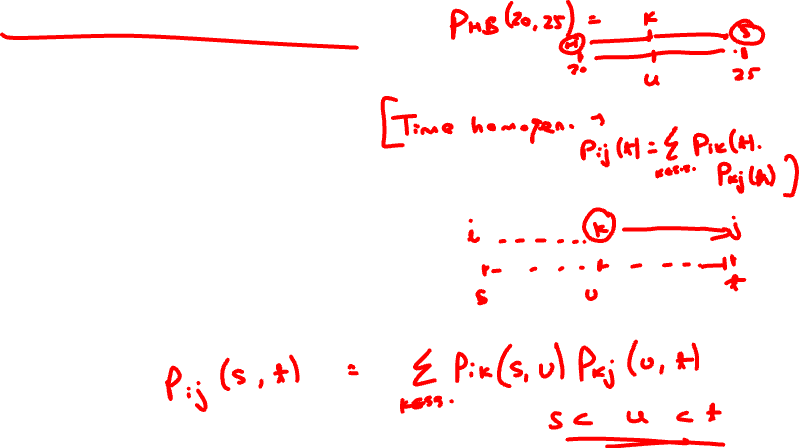 P_HS(20,25) = K
H S
20 u 25
[Time homogen. →
P_ij(t) = Σ_{k∈s.s.} P_ik(t).
P_kj(t)]
i k j
s u t
P_ij(s,t) = Σ_{k∈s.s.} P_ik(s,u) P_kj(u,t)
s < u < t